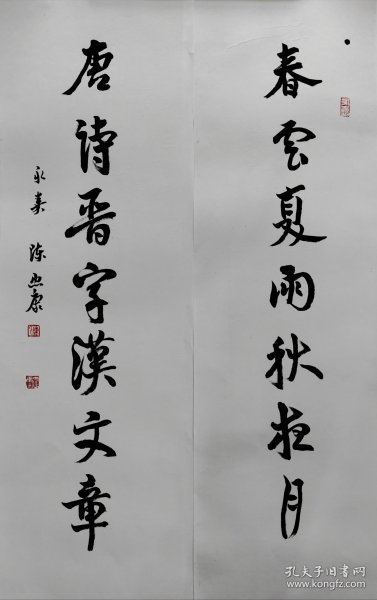 春云夏雨秋夜月
唐诗晋字漢文章
永嘉 陈忠康
孔夫子旧书网
www.kongfz.com